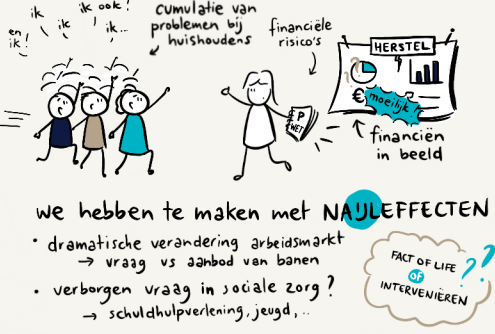 en
ik!
ik
ik
ik ook!
ik...
cumulatie van
problemen bij
huishoudens
financiële
risico's
P
WET
HERSTEL
€
moeilijk
financiën
in beeld
we hebben te maken met NAIJLEFFECTEN
• dramatische verandering arbeidsmarkt
→ vraag vs aanbod van banen
• verborgen vraag in sociale zorg?
→ schuldhulpverlening, jeugd, ..
FACT OF LIFE
OF
INTERVENIËREN
??